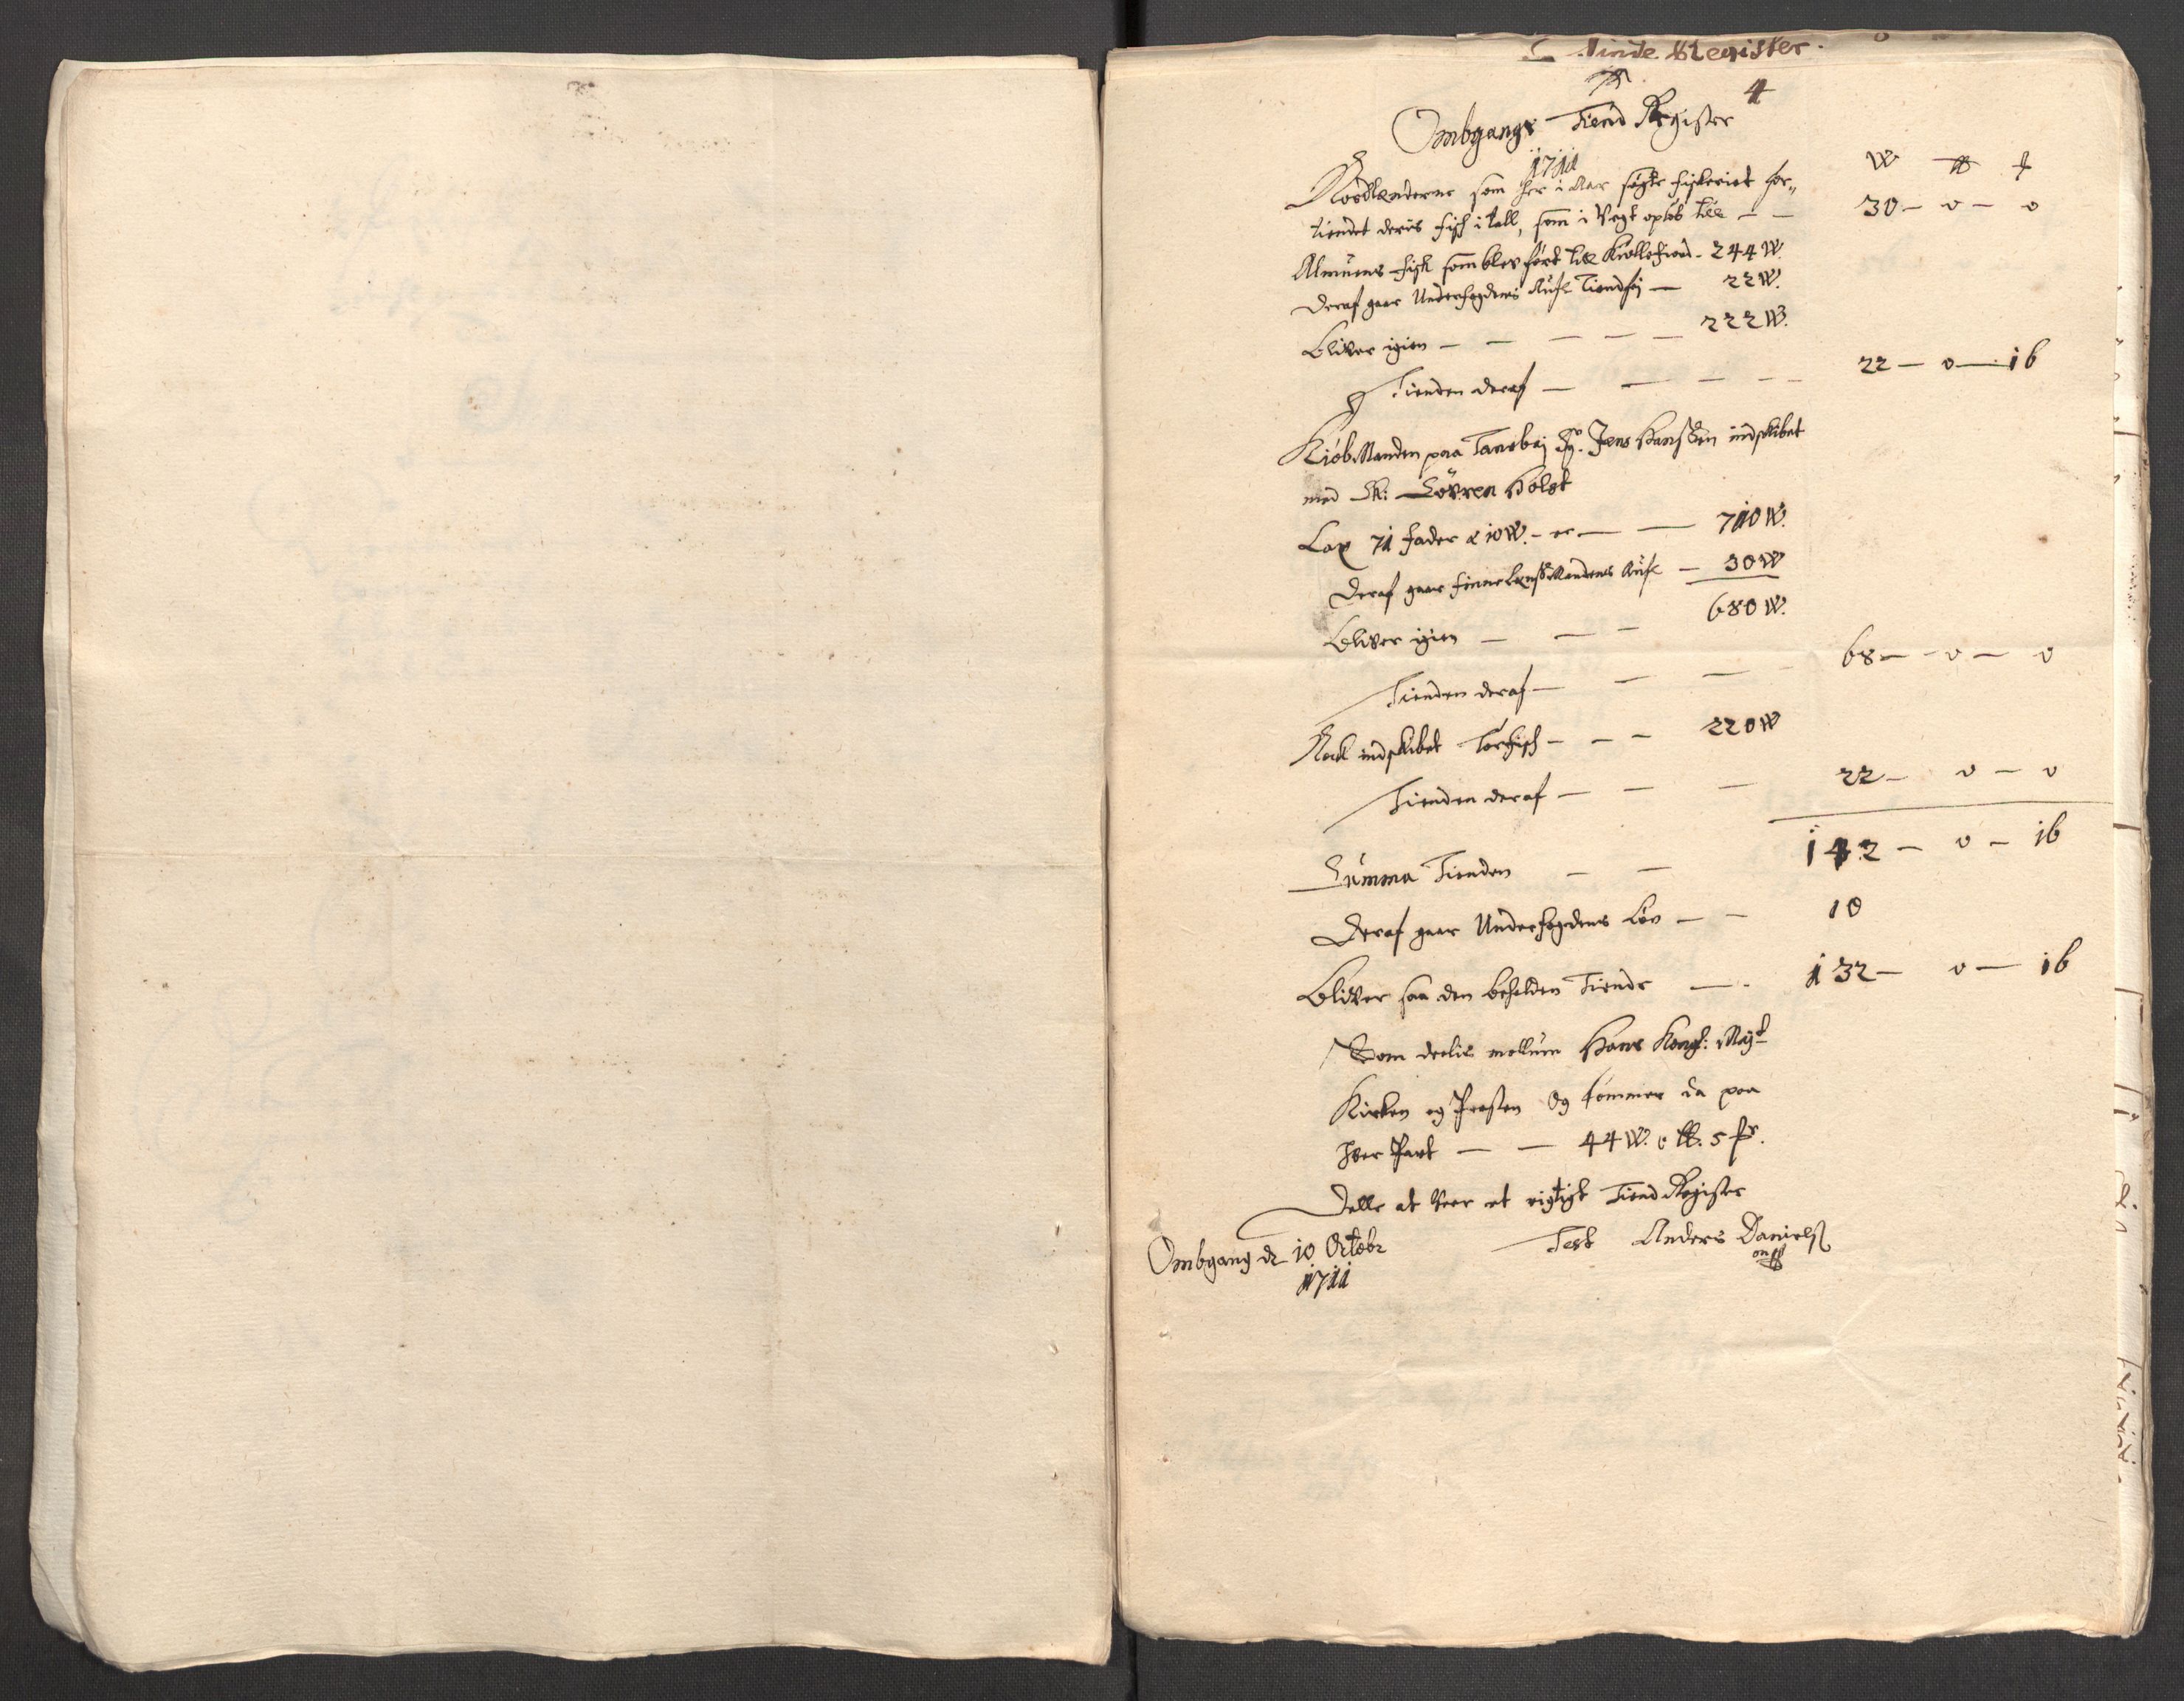 Tinde Register.
4
Ombgangs Tiend Register
1711
W ℔ ƒ
Nordlænderne som her i Aar søgte fiskeriet for„
tiendet deris fisk i tall, som i Vegt opløb till — — 30 — 0 — 0
Almuens fisk som blev ført till Kiøllefiord - 244 W.
Deraf gaar Underfogdens Tiendfrj — 22 W.
Bliver igien — — — — — 222 W.
Tienden deraf — — — — 22 — 0 — 16
Kiøbmanden paa Tanebaj Sr. Jens Hanssøn indskibet
med Sk: Søvren Holst
Lax 71 fader a 10 W. - er — — 710 W.
Deraf gaar finne Lensmandens — 30 W
Bliver igien — — — 680 W.
Tienden deraf — — — — 68 — 0 — 0
Nock indskibet Tørfisk — — — 220 W
Tienden deraf — — — 22 — 0 — 0
Summa Tienden — — 142 — 0 — 16
Deraf gaar Underfogdens Løn — — 10
Bliver saa den beholden Tiende — - 132 — 0 — 16
Som deelis mellum Hans Kongl: Mayt
Kirken og Presten og kommer da paa
hver Part — — 44 W. 0 ℔. 5
Dette at være et rigtigt Tiend Register
Test Anders Daniels
Ombgang d 10 Octobr
1711